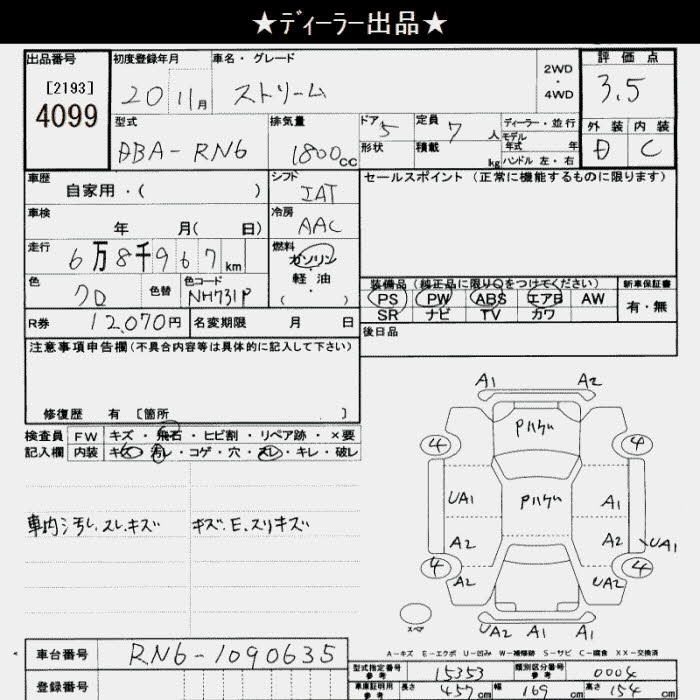 ★ディーラー出品★
出品番号 初度登録年月 車名・グレード 2WD・4WD 評価点
[2193] 20 11月 ストリーム 3.5
4099
型式 排気量 ドア 5 定員 7人 ディーラー・並行 外装 内装
DBA-RN6 1800cc 形状 積載 kg モデル年式 年 D C
ハンドル 左・右
車歴 シフト セールスポイント(正常に機能するものに限ります)
自家用・( ) IAT
車検 冷房
年 月( 日) AAC
走行 燃料
6万8千967km ガソリン
軽油
色 色替 色コード ( )
クロ NH731P
装備品(純正品に限り○をつけてください) 新車保証書
PS PW ABS エアB AW 有・無
SR ナビ TV カワ
R券 12,070円 名変期限 月 日 後日品
注意事項申告欄(不具合内容等は具体的に記入して下さい)
修復歴 有 [箇所 ]
検査員 FW キズ・飛石・ヒビ割・リペア跡・×要
記入欄 内装 キズ・汚レ・コゲ・穴・スレ・キレ・破レ
車内汚レ.スレ.キズ キズ.E.スリキズ
A1 A2
Pハゲ
4 4
UA1 Pハゲ A1
A2 A2 UA1
4 4
A2 UA2
スペア
UA2 A1 A1
A-キズ E-エクボ U-凹み W-補修跡 S-サビ C-腐食 XX-交換済
車台番号 RN6-1090635
型式指定番号 参考 15353 類別区分番号 参考 0004
登録番号
車庫証明用 参考 長さ 457cm 幅 169cm 高さ 154cm